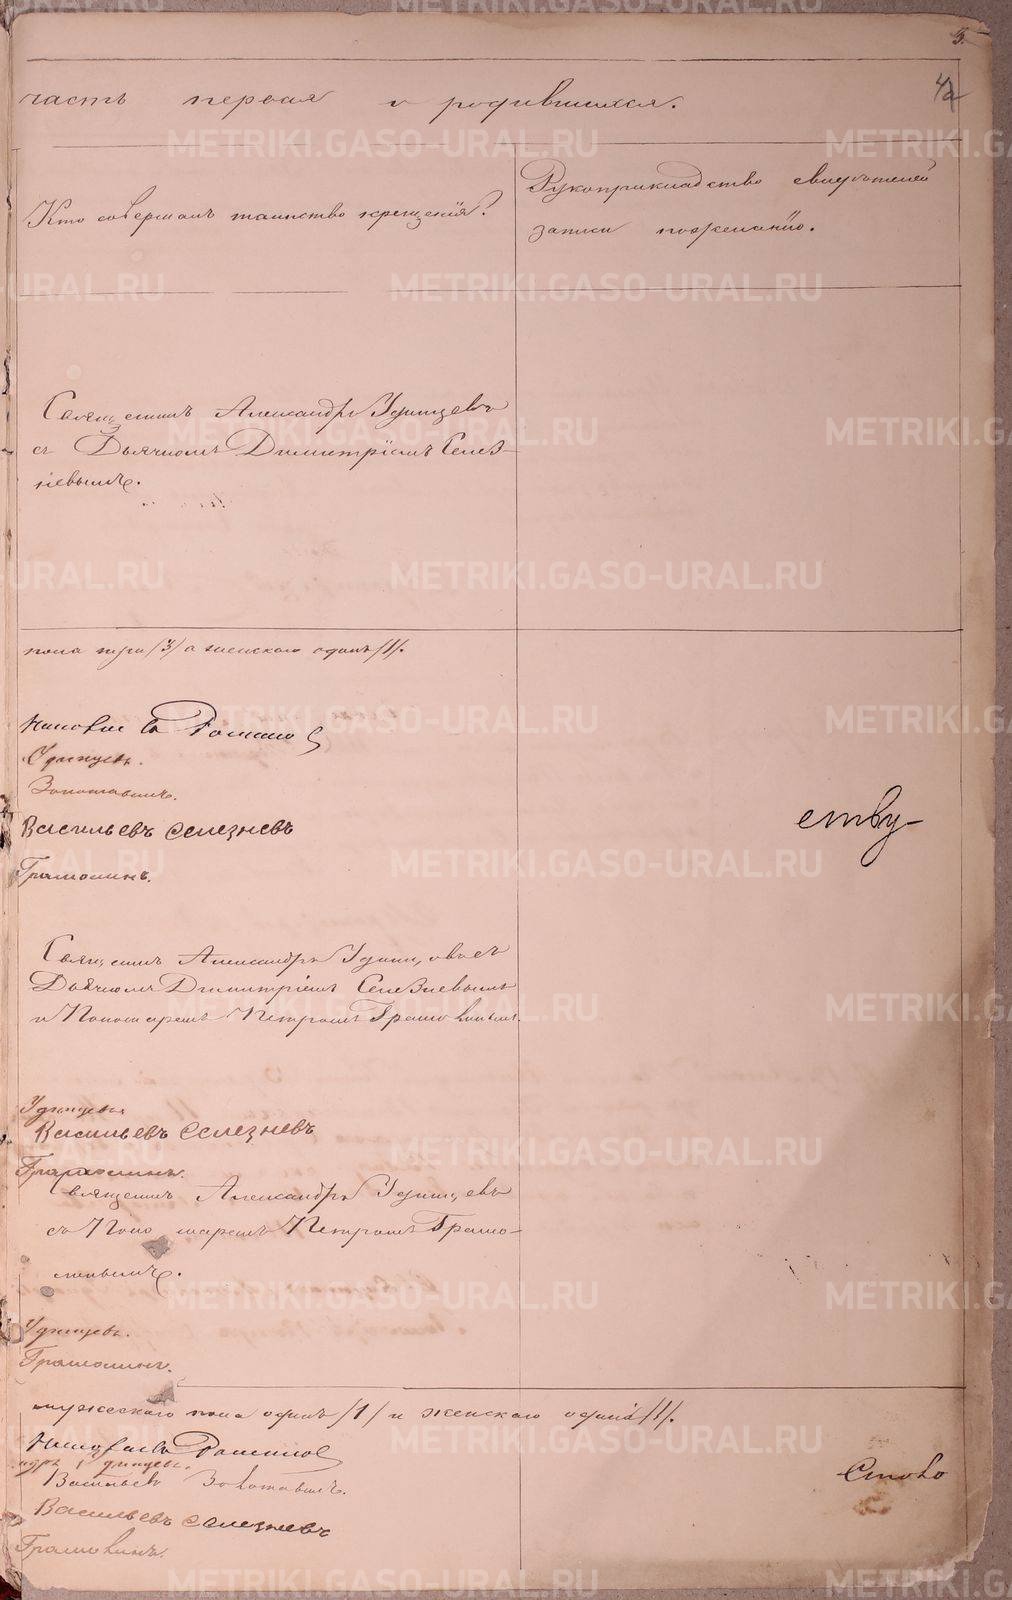 3.
42
часть первая о родившихся.
Кто совершалъ таинство крещенія?
Рукоприкладство свидѣтелей
записи по желанію.
Священникъ Александръ Удинцевъ
съ Дьячкомъ Димитріемъ Селез-
невымъ.
пола три /3/ а женскаго одинъ /1/.
Романов
Удинцевъ.
Золотавинъ.
Васильевъ Селезневъ
ству-
Грамолинъ.
Священникъ Александръ Удинцовъ съ
Дьячкомъ Димитріемъ Селезневымъ
и Пономаремъ Петромъ Грамолинымъ.
Удинцевъ
Васильевъ Селезневъ
Грамолинъ.
Священникъ Александръ Удинцевъ
съ Пономаремъ Петромъ Грамо-
линымъ.
Удинцевъ.
Грамолинъ.
мужескаго пола одинъ /1/ и женскаго одна /1/.
Романов
ндръ Удинцевъ.
Васильевъ Золотавинъ.
Слово
Васильевъ Селезневъ
Грамолинъ.
METRIKI.GASO-URAL.RU